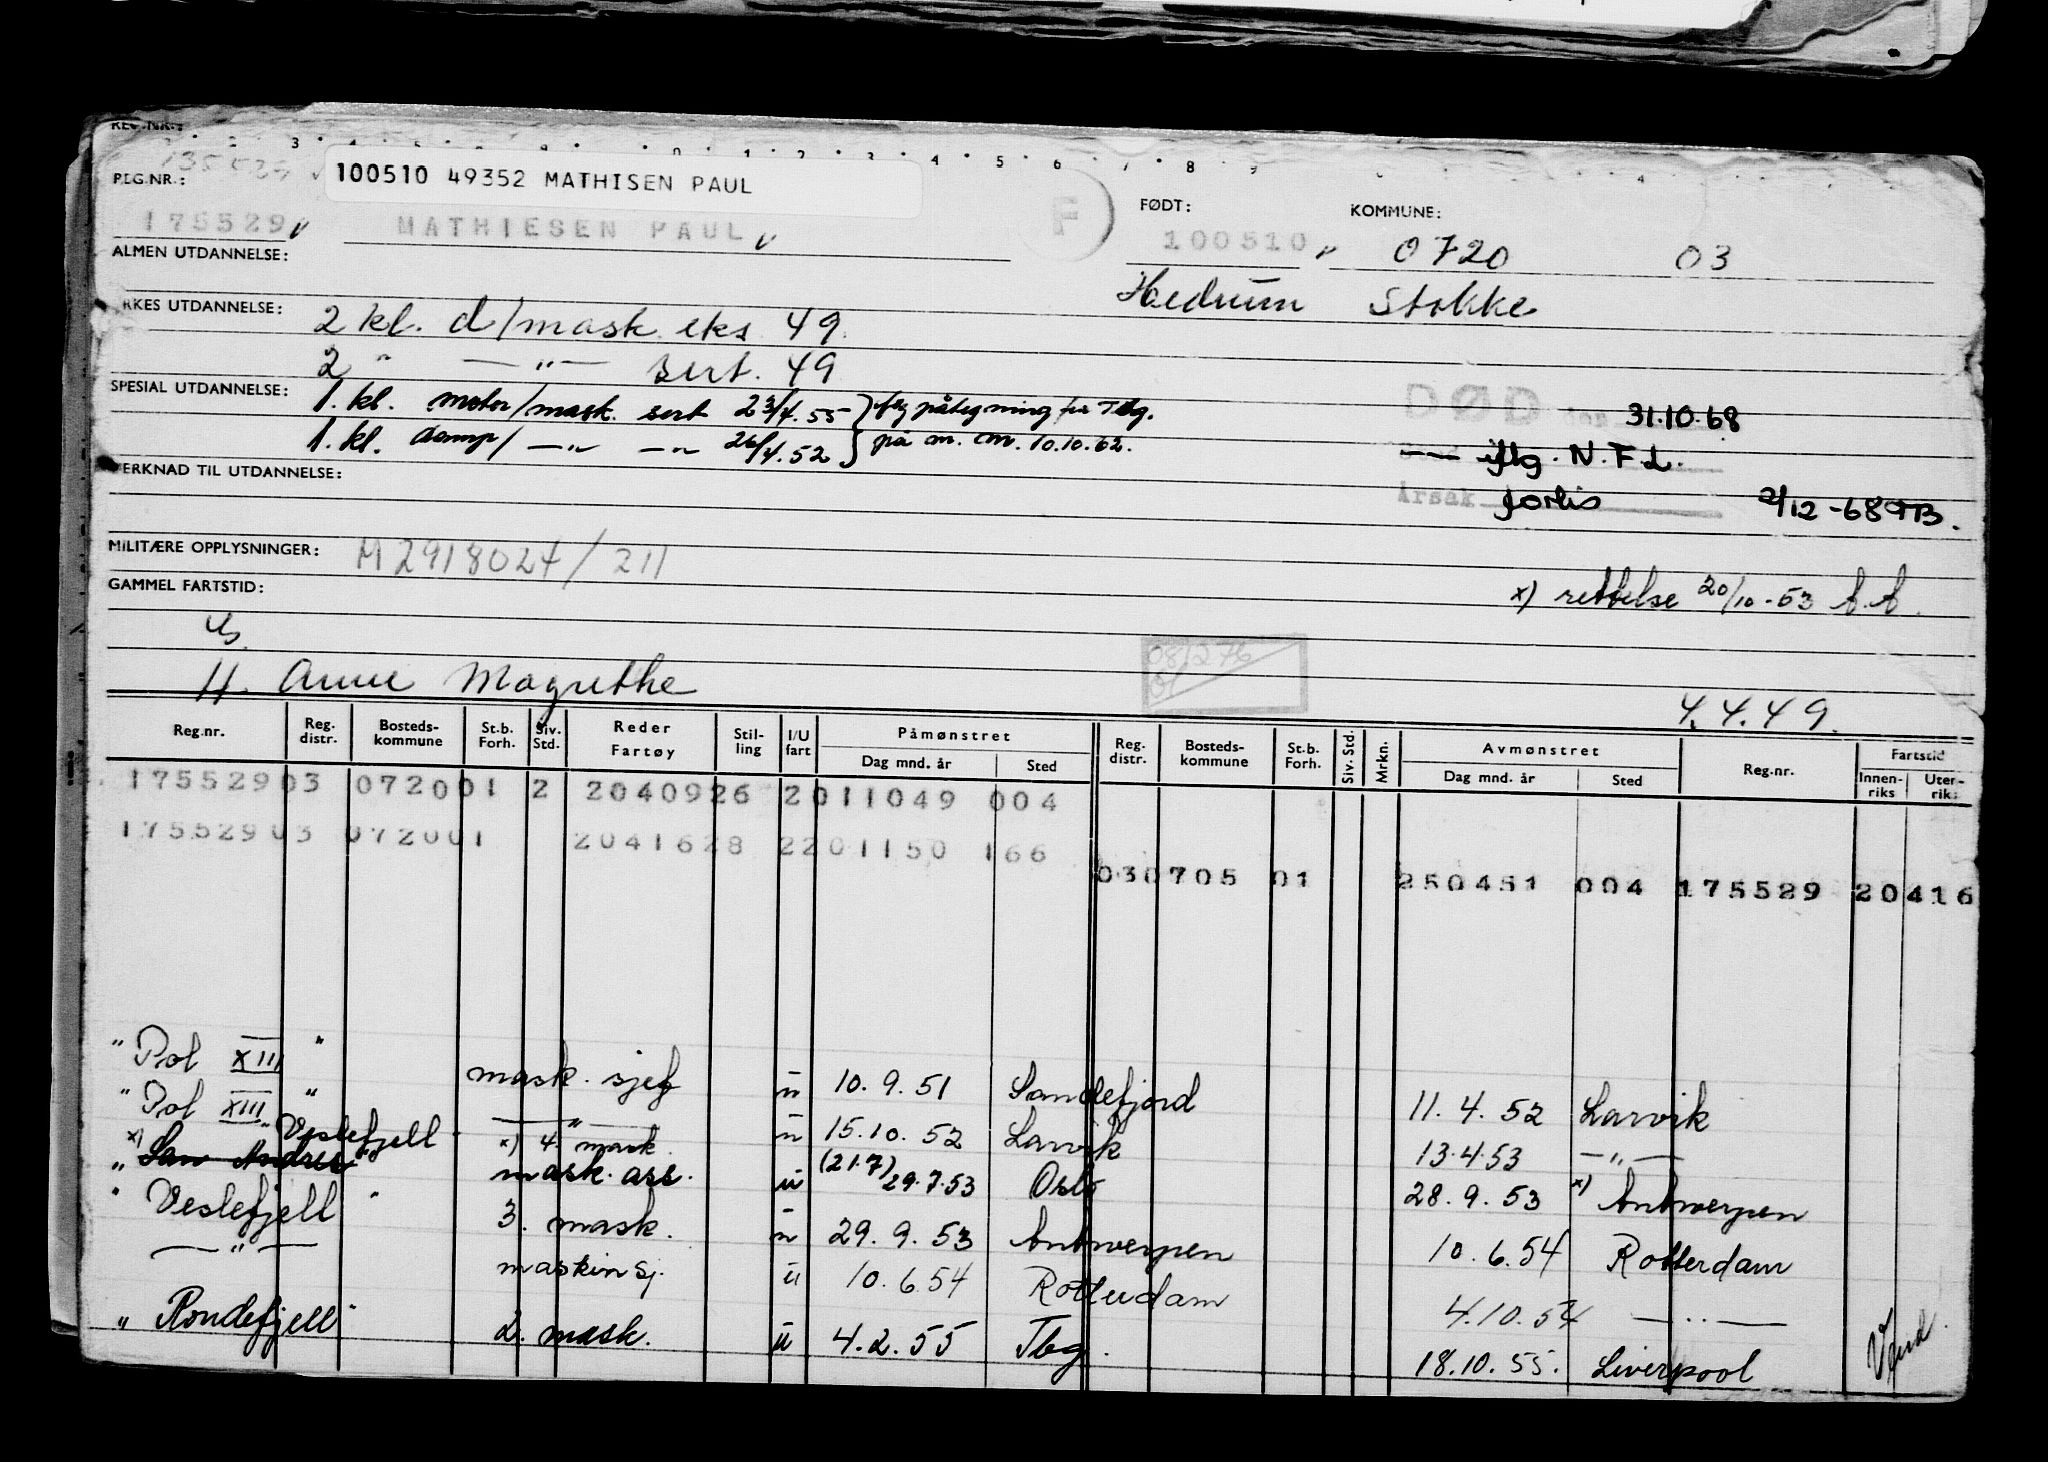 REG.NR.:
135529
100510 49352 MATHISEN PAUL
REG.NR.: FØDT: KOMMUNE:
175529 MATHIESEN PAUL F 100510 0720 03
ALMEN UTDANNELSE:
Hedrum Stokke
YRKES UTDANNELSE: 2 kl. d/mask eks 49.
2 " — " — sert. 49
SPESIAL UTDANNELSE: 1. kl. motor/mask. sert 23/4.55 } iflg påtegning fra Tbg.
1. kl. damp/ —"— —"— 26/4.52 } på m. m. 10.10.62.
DØD den 31.10.68
iflg. N.F.L.
Årsak forlis 2/12-68
MERKNAD TIL UTDANNELSE:
MILITÆRE OPPLYSNINGER: M2918024/211
GAMMEL FARTSTID:
x) rettelse 20/10-53
08/276
H. Anne Magrethe 4.4.49.
Reg.nr. Reg. distr. Bosteds-kommune St.b. Forh. Siv. Std. Reder Fartøy Stil-ling I/U fart Påmønstret Dag mnd. år Sted Reg. distr. Bosteds-kommune St.b. Forh. Siv. Std. Mrkn. Avmønstret Dag mnd. år Sted Reg.nr. Fartstid Innen-riks Uten-riks
175529 03 0720 01 2 2040926 2 011049 004
175529 03 0720 01 2041628 2 201150 166
03 0705 01 250451 004 175529 20416
" Pol XIII " mask. sjef u 10. 9. 51 Sandefjord 11. 4. 52 Larvik
" Pol XIII " — " — u 15. 10. 52 Larvik 13.4.53 — " —
" Veslefjell " x) 4. mask.
x) " San Andres " mask. ass. u (21.7) 29.7.53 Oslo 28. 9. 53 x) Antwerpen
" Veslefjell " 3. mask. u 29. 9. 53 Antwerpen 10. 6. 54 Rotterdam
— " — maskinsj. u 10. 6. 54 Rotterdam 4.10.54 — " —
" Rondefjell " 2. mask. u 4. 2. 55 Tbg. 18.10. 55. Liverpool
Vend.